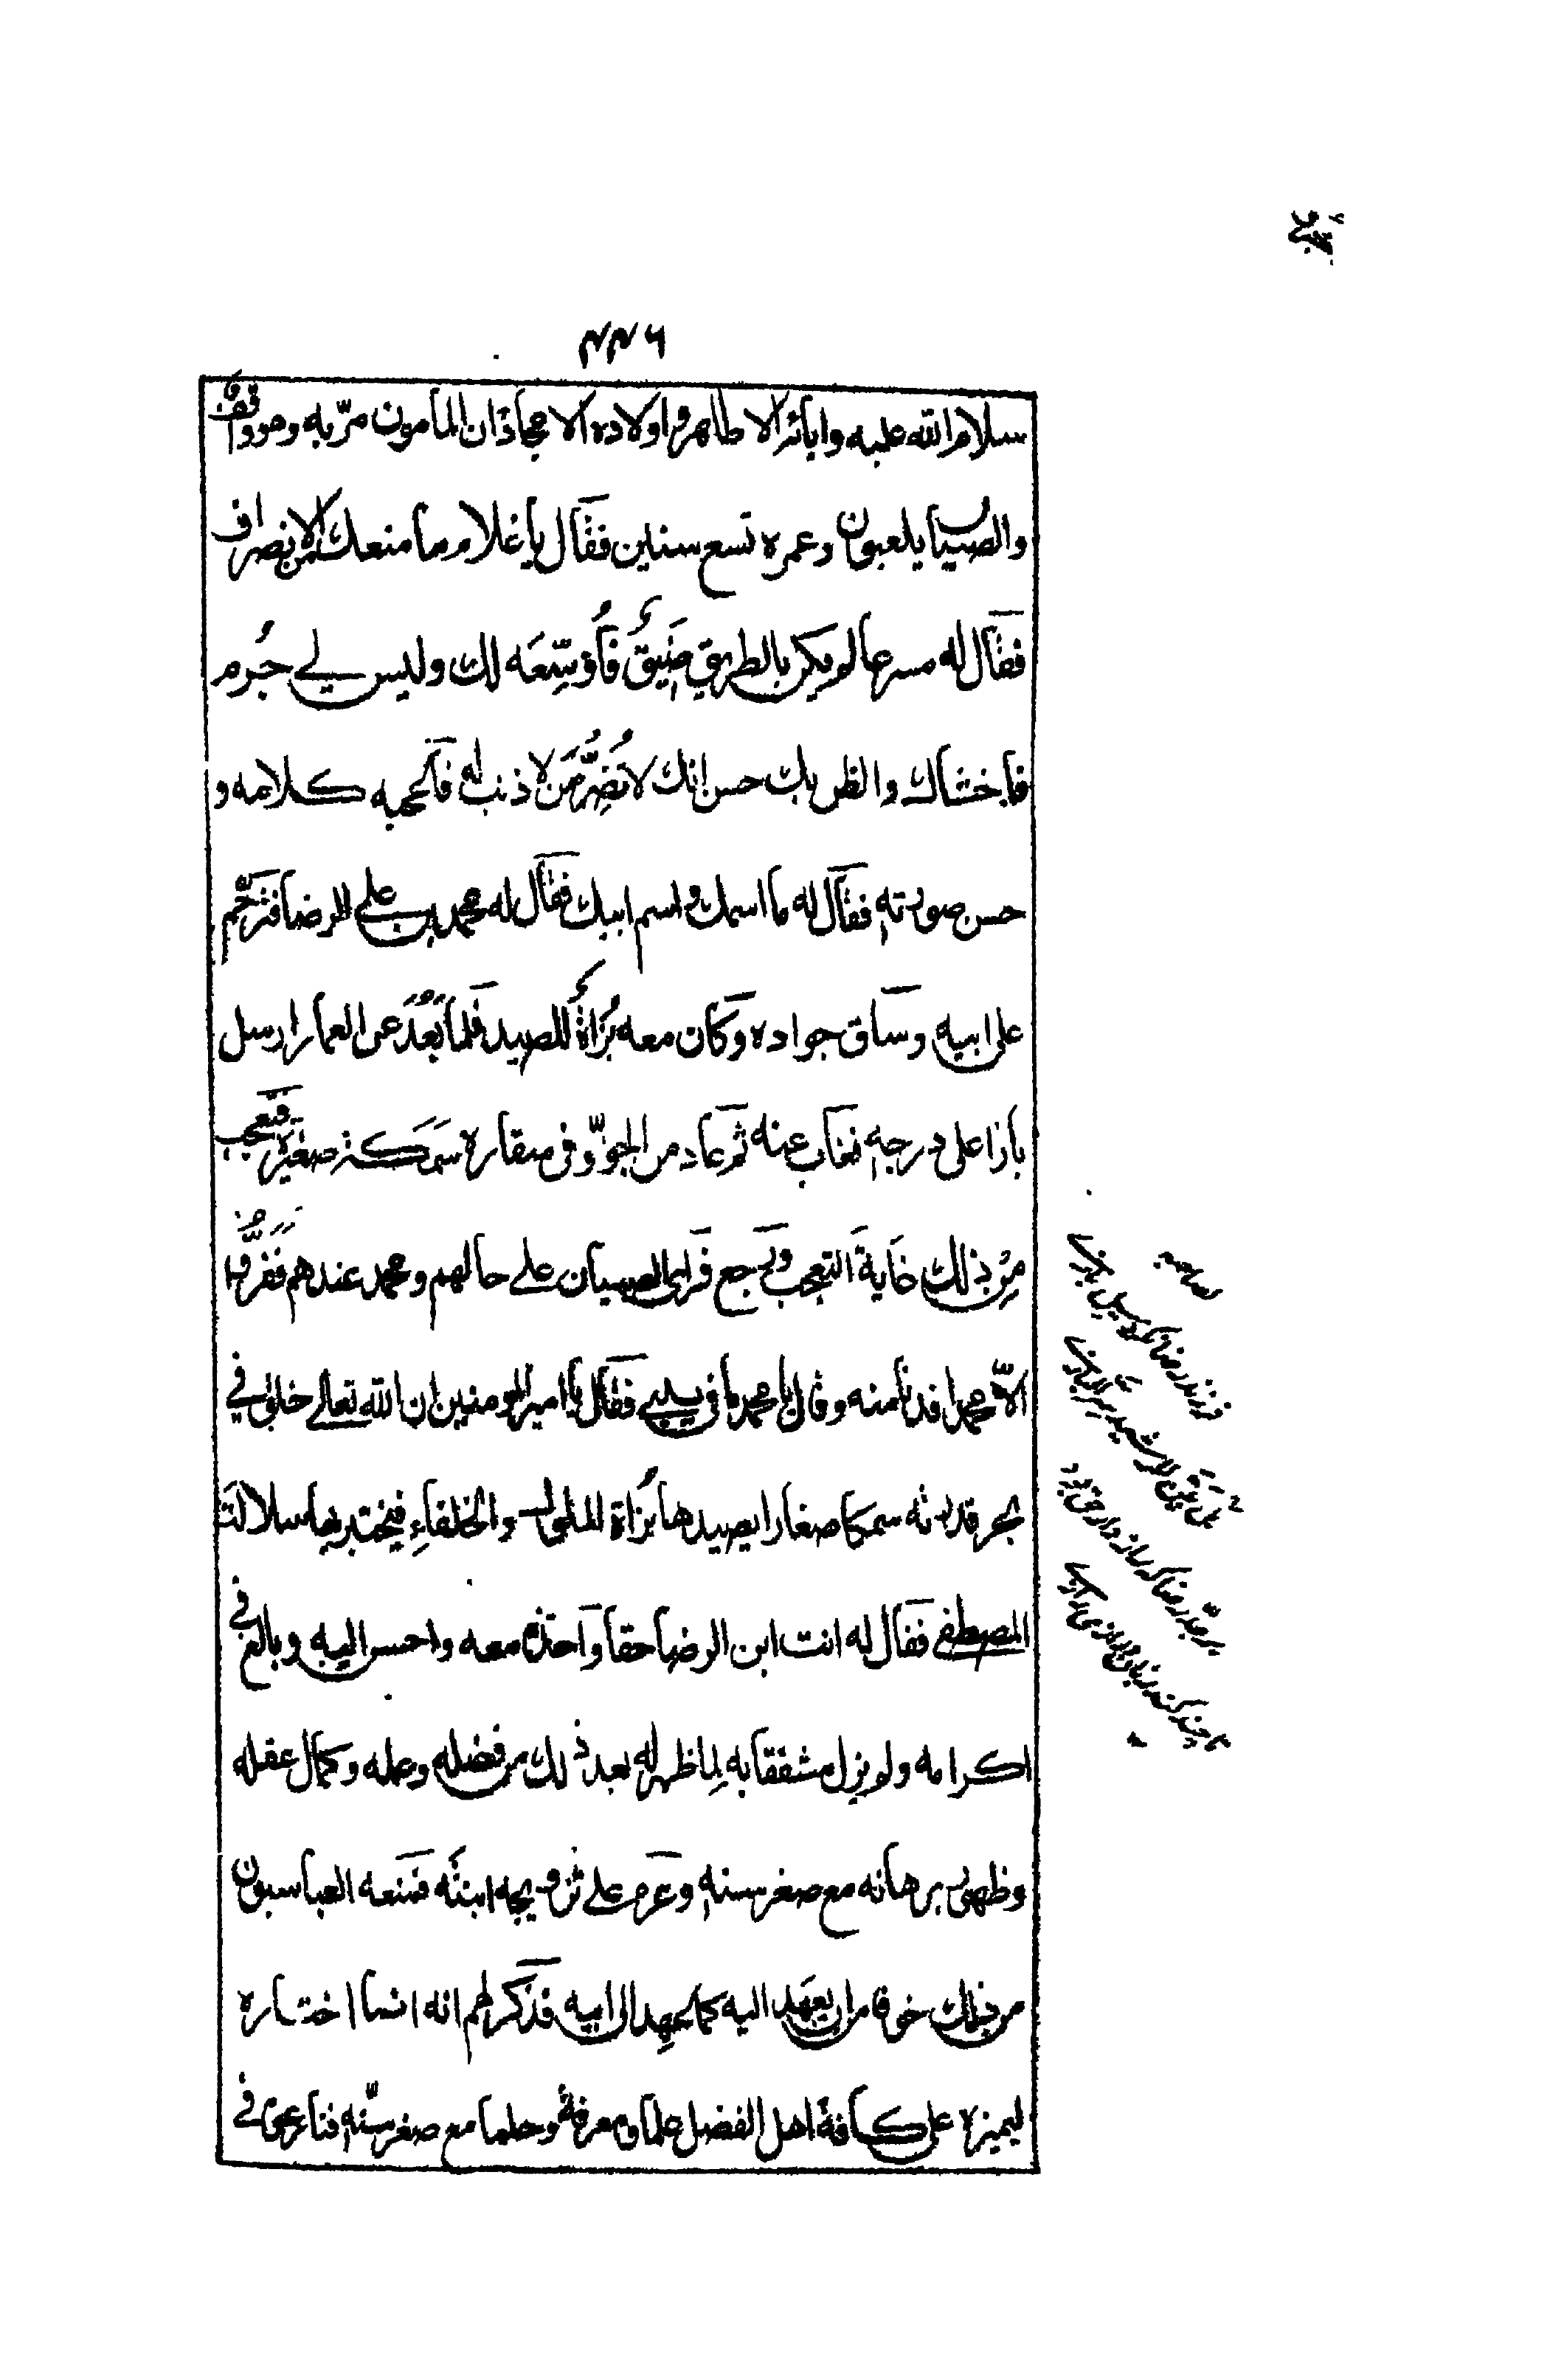 ۲۲۶
سلام الله عليه وابائه الاطاهر واولاده الامجاد ان المامون مرّ به وهو واقف
والصبيان يلعبون وعمره تسع سنين فقال يا غلام ما منعك من الانصراف
فقال له مسرعا لم يكن بالطريق ضَيِقٌ فَأُوَسِّعَه لك وليس لے جُرم
فاخشاك والظن بك حسن انك لا تُضِرُّ مَن لا ذنب له فاعجبه كلامه و
حسن صورته فقال له ما اسمك واسم ابيك فقال له محمد بن علے الرضا فترحّم
على ابيه وساق جواده وكان معه بُزاةٌ للصيد فلما بَعُدَ عن العمار ارسل
بازا على درجه فغاب عنه ثم عاد من الجوّ و فى منقاره سَمَكة صغيرة فتعجب
مِن ذلك غايةَ التعجب ورجع فراى الصبيان علے حالهم ومحمد عندهم فَفَرُّوا
الاّ محمدا فدنا منه وقال يا محمد ما فى يدے فقال يا امير المومنين ان الله تعالے خلق فے
بحر قدرته سمكا صغارا يصيدها بُزاة الملوك والخلفاءِ فيختبر بها سلالة
المصطفى فقال له انت ابن الرضا حقا واخذه معه واحسن اليه وبالغ فے
اكرامه ولم يزل مشفقا به لِما ظهر له بعد ذلك من فضله وعلمه وكمال عقله
وظهور برهانه مع صغر سنه وعزم علے تزويجه ابنته فمنعه العباسيون
من ذلك خوفا من ان يعهد اليه كما عهد الى ابيه فذكر لهم انه انما اختاره
ليميزه على كافة اهل الفضل علما ومعرفة وحلما مع صغر سنّه فتنازعوا فے